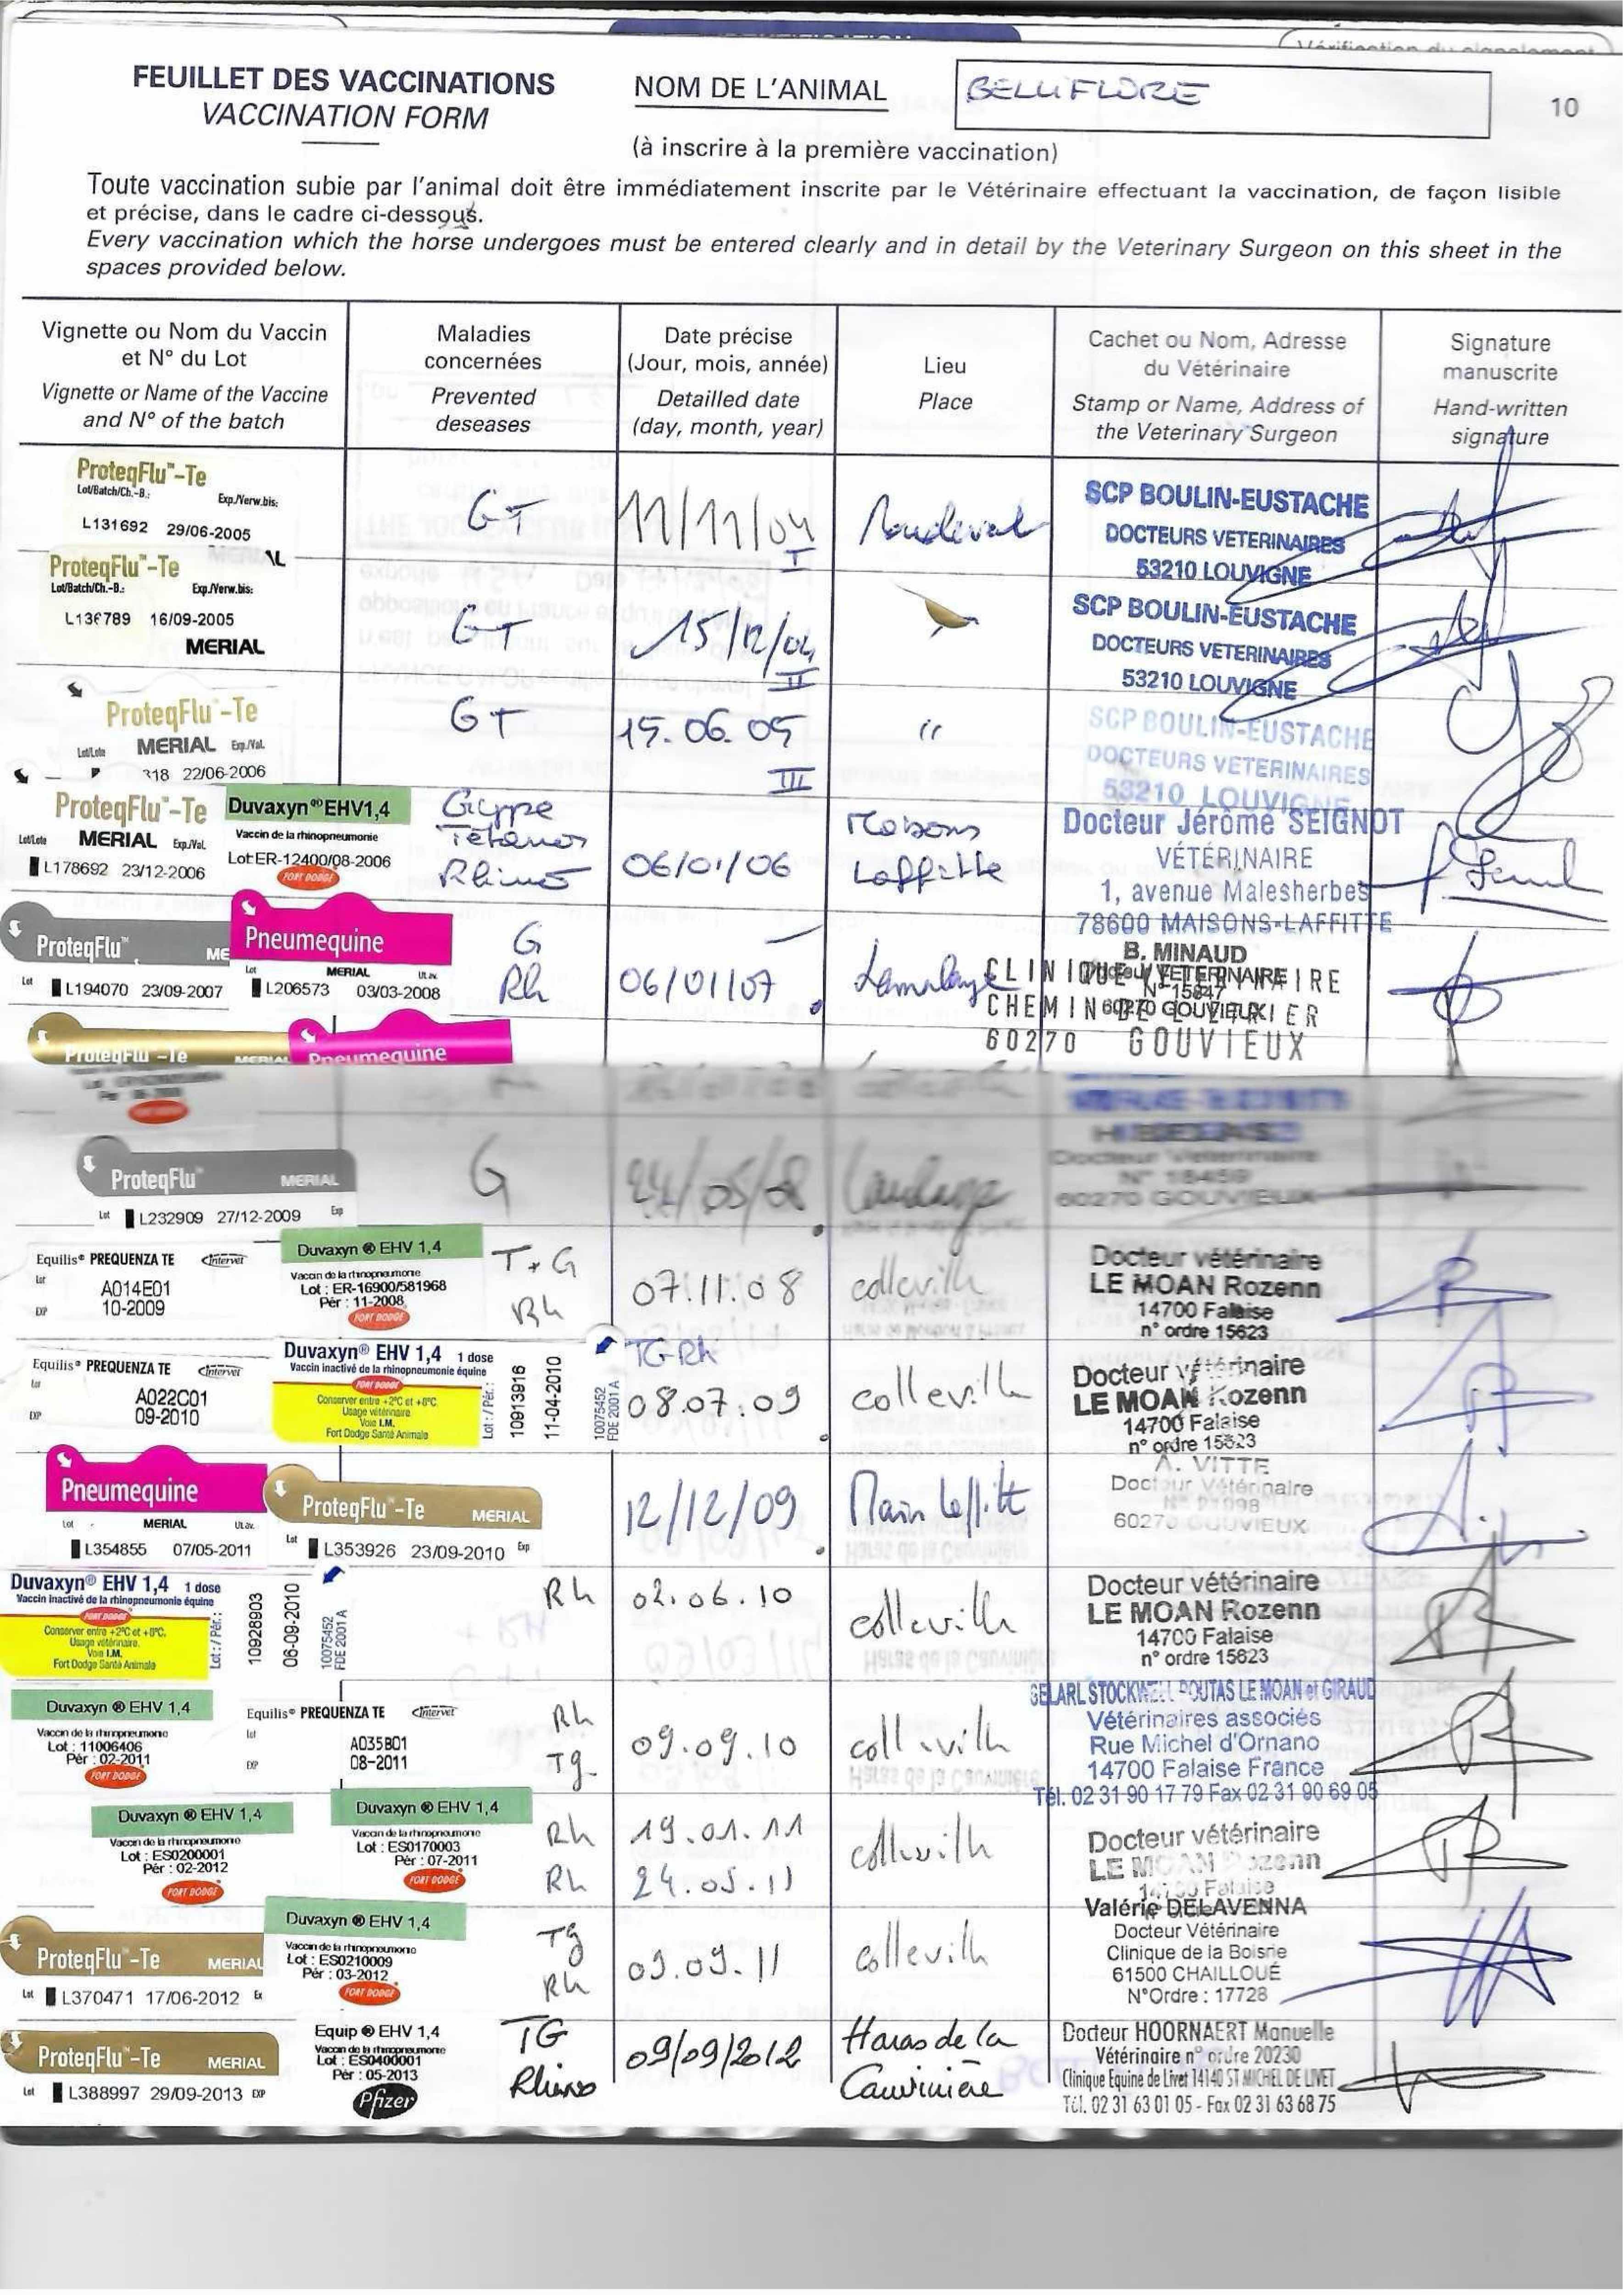 FEUILLET DES VACCINATIONS
VACCINATION FORM
NOM DE L'ANIMAL
BELLIFLORE
10
(à inscrire à la première vaccination)
Toute vaccination subie par l'animal doit être immédiatement inscrite par le Vétérinaire effectuant la vaccination, de façon lisible
et précise, dans le cadre ci-dessous.
Every vaccination which the horse undergoes must be entered clearly and in detail by the Veterinary Surgeon on this sheet in the
spaces provided below.
Vignette ou Nom du Vaccin
et N° du Lot
Vignette or Name of the Vaccine
and N° of the batch
Maladies
concernées
Prevented
deseases
Date précise
(Jour, mois, année)
Detailled date
(day, month, year)
Lieu
Place
Cachet ou Nom, Adresse
du Vétérinaire
Stamp or Name, Address of
the Veterinary Surgeon
Signature
manuscrite
Hand-written
signature
ProteqFlu™-Te
Lot/Batch/Ch.-B.: Exp./Verw.bis:
L131692 29/06/2005
GT
11/11/04
I
SCP BOULIN-EUSTACHE
DOCTEURS VETERINAIRES
53210 LOUVIGNE
ProteqFlu™-Te
Lot/Batch/Ch.-B.: Exp./Verw.bis:
L136789 16/09-2005
MERIAL
GT
15/12/04
II
SCP BOULIN-EUSTACHE
DOCTEURS VETERINAIRES
53210 LOUVIGNE
ProteqFlu™-Te
MERIAL Exp./Val.
318 22/06-2006
GT
15.06.05
III
"
SCP BOULIN-EUSTACHE
DOCTEURS VETERINAIRES
53210 LOUVIGNE
ProteqFlu™-Te
Lot/Lote MERIAL Exp./Val.
L178692 23/12-2006
Duvaxyn® EHV1,4
Vaccin de la rhinopneumonie
Lot:ER-12400/08-2006
FORT DODGE
Grippe
Tétanos
Rhino
06/01/06
Maisons
Laffitte
Docteur Jérôme SEIGNOT
VÉTÉRINAIRE
1, avenue Malesherbes
78600 MAISONS-LAFFITTE
ProteqFlu™
Lot L194070 23/09-2007
Pneumequine
Lot MERIAL Ut. av.
L206573 03/03-2008
G
Rh
06/01/07
Lamorlaye
B. MINAUD
N° 15847
60270 GOUVIEUX
CLINIQUE VETERINAIRE
60270 GOUVIEUX
ProteqFlu™-Te MERIAL
Pneumequine
ProteqFlu™ MERIAL
Lot L232909 27/12-2009 Exp
G
24/05/08
Docteur Vétérinaire
N° 18459
60270 GOUVIEUX
Equilis® PREQUENZA TE Intervet
Lot A014E01
EXP 10-2009
Duvaxyn ® EHV 1,4
Vaccin de la rhinopneumonie
Lot : ER-16900/581968
Pér : 11-2008
FORT DODGE
T+G
Rh
07.11.08
colleville
Docteur vétérinaire
LE MOAN Rozenn
14700 Falaise
n° ordre 15623
Equilis® PREQUENZA TE Intervet
Lot A022C01
EXP 09-2010
Duvaxyn® EHV 1,4 1 dose
Vaccin inactivé de la rhinopneumonie équine
FORT DODGE
Conserver entre +2°C et +8°C.
Usage vétérinaire.
Voie I.M.
Fort Dodge Santé Animale
Lot : / Pér. :
10913916
11-04-2010
10075452
FDE 2001 A
TG Rh
08.07.09
colleville
Docteur vétérinaire
LE MOAN Rozenn
14700 Falaise
n° ordre 15623
Pneumequine
Lot MERIAL Ut. av.
L354855 07/05-2011
ProteqFlu™-Te MERIAL
Lot L353926 23/09-2010 Exp
12/12/09
A. VITTE
Docteur Vétérinaire
60270 GOUVIEUX
Duvaxyn® EHV 1,4 1 dose
Vaccin inactivé de la rhinopneumonie équine
FORT DODGE
Conserver entre +2°C et +8°C.
Usage vétérinaire.
Voie I.M.
Fort Dodge Santé Animale
Lot : / Pér. :
10928903
06-09-2010
10075452
FDE 2001 A
Rh
02.06.10
colleville
Docteur vétérinaire
LE MOAN Rozenn
14700 Falaise
n° ordre 15623
Duvaxyn ® EHV 1,4
Vaccin de la rhinopneumonie
Lot : 11006406
Pér : 02-2011
FORT DODGE
Equilis® PREQUENZA TE Intervet
Lot A035B01
EXP 08-2011
Rh
Tg
09.09.10
colleville
SELARL STOCKWELL POUTAS LE MOAN et GIRAUD
Vétérinaires associés
Rue Michel d'Ornano
14700 Falaise France
Tél. 02 31 90 17 79 Fax 02 31 90 69 05
Duvaxyn ® EHV 1,4
Vaccin de la rhinopneumonie
Lot : ES0200001
Pér : 02-2012
FORT DODGE
Duvaxyn ® EHV 1,4
Vaccin de la rhinopneumonie
Lot : ES0170003
Pér : 07-2011
FORT DODGE
Rh
Rh
19.01.11
24.05.11
colleville
Docteur vétérinaire
LE MOAN Rozenn
14700 Falaise
ProteqFlu™-Te MERIAL
Lot L370471 17/06-2012 Ex
Duvaxyn ® EHV 1,4
Vaccin de la rhinopneumonie
Lot : ES0210009
Pér : 03-2012
FORT DODGE
Tg
Rh
09.09.11
colleville
Valérie DELAVENNA
Docteur Vétérinaire
Clinique de la Boisrie
61500 CHAILLOUÉ
N°Ordre : 17728
ProteqFlu™-Te MERIAL
Lot L388997 29/09-2013 EXP
Equip ® EHV 1,4
Vaccin de la rhinopneumonie
Lot : ES0400001
Pér : 05-2013
Pfizer
TG
Rhino
09/09/2012
Haras de la
Cauvinière
Docteur HOORNAERT Manuelle
Vétérinaire n° ordre 20230
Clinique Equine de Livet 14140 ST MICHEL DE LIVET
Tél. 02 31 63 01 05 - Fax 02 31 63 68 75